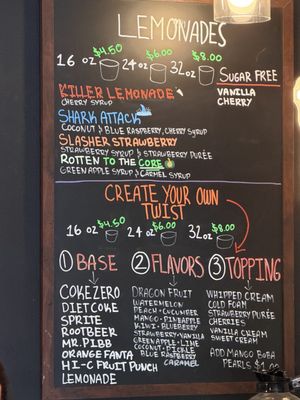 LEMONADES
16 oz $4.50 24 oz $6.00 32 oz $8.00
SUGAR FREE
VANILLA
CHERRY
KILLER LEMONADE
CHERRY SYRUP
SHARK ATTACK
COCONUT & BLUE RASPBERRY, CHERRY SYRUP
SLASHER STRAWBERRY
STRAWBERRY SYRUP & STRAWBERRY PURÉE
ROTTEN TO THE CORE
GREEN APPLE SYRUP & CARMEL SYRUP
CREATE YOUR OWN
TWIST
16 oz $4.50 24 oz $6.00 32 oz $8.00
1 BASE
COKE ZERO
DIET COKE
SPRITE
ROOTBEER
MR. PIBB
ORANGE FANTA
HI-C FRUIT PUNCH
LEMONADE
2 FLAVORS
DRAGON FRUIT
WATERMELON
PEACH · CUCUMBER
MANGO · PINEAPPLE
KIWI · BLUEBERRY
STRAWBERRY · VANILLA
GREEN APPLE · LIME
COCONUT · PICKLE
BLUE RASPBERRY
CARAMEL
3 TOPPING
WHIPPED CREAM
COLD FOAM
STRAWBERRY PURÉE
CHERRIES
VANILLA CREAM
SWEET CREAM
ADD MANGO BOBA
PEARLS $1.00